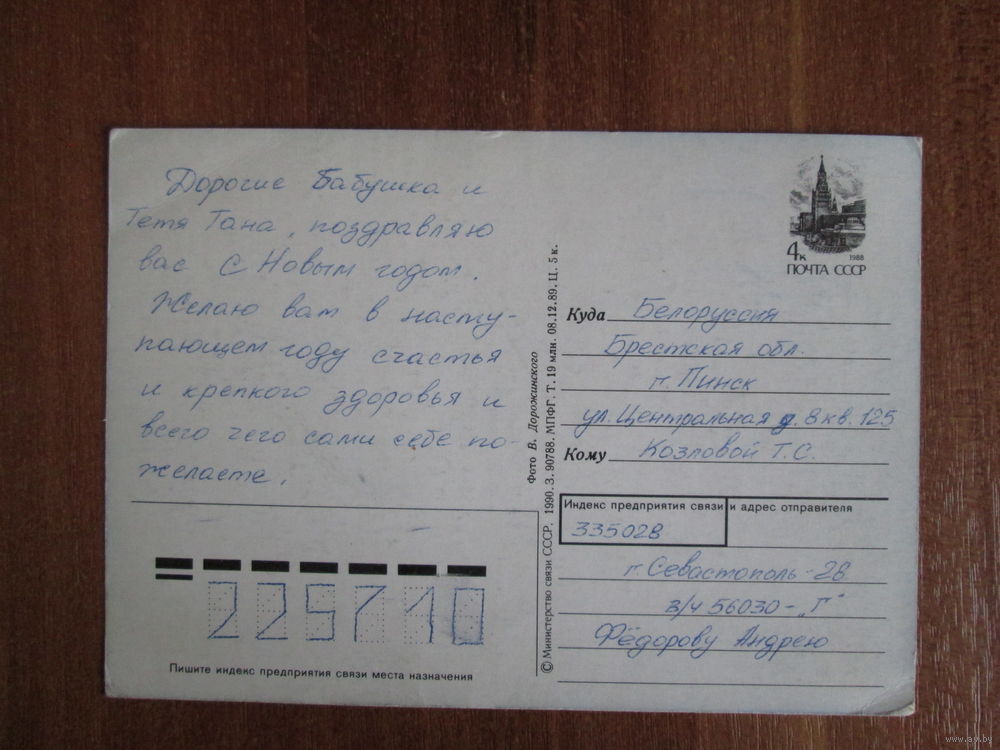 Дорогие Бабушка и
Тетя Тана, поздравляю
вас с Новым годом.
Желаю вам в насту-
пающем году счастья
и крепкого здоровья и
всего чего сами себе по-
желаете.
225710
Пишите индекс предприятия связи места назначения
© Министерство связи СССР. 1990. З. 90788. МПФГ. Т. 19 млн. 08.12.89. Ц. 5 к.
Фото В. Дорожинского
4к
1988
ПОЧТА СССР
Куда Белоруссия
Брестская обл.
г. Пинск
ул. Центральная д. 8 кв. 125
Кому Козловой Т. С.
Индекс предприятия связи и адрес отправителя
335028
г. Севастополь - 28
в/ч 56030 - „Г"
Фёдорову Андрею
www.ay.by